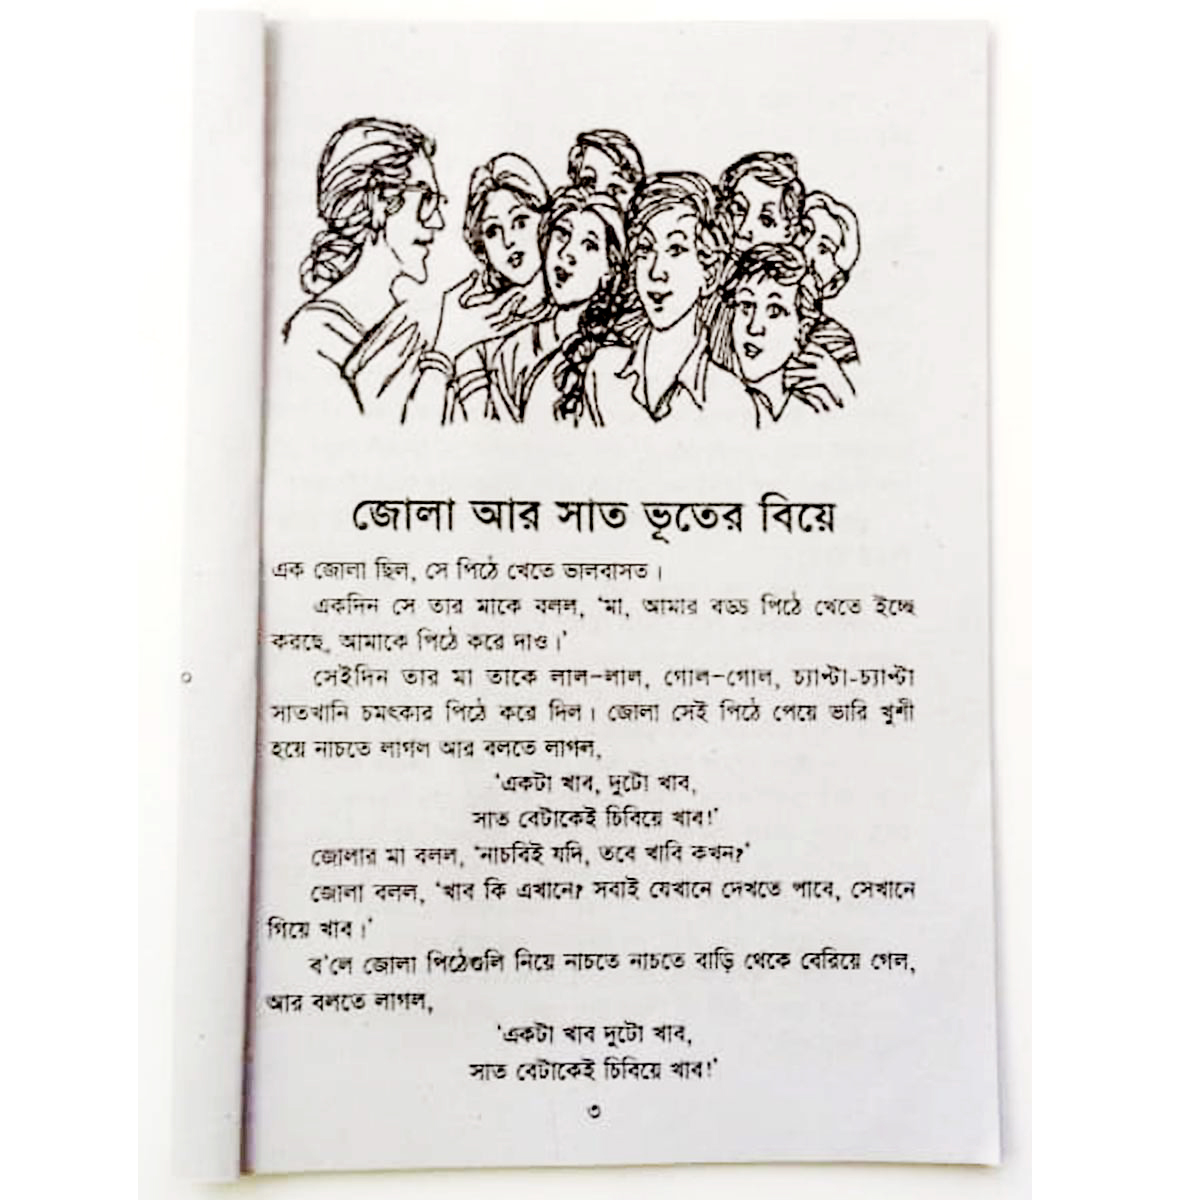 জোলা আর সাত ভূতের বিয়ে
এক জোলা ছিল, সে পিঠে খেতে ভালবাসত।
একদিন সে তার মাকে বলল, ‘মা, আমার বড্ড পিঠে খেতে ইচ্ছে
করছে, আমাকে পিঠে করে দাও।’
সেইদিন তার মা তাকে লাল-লাল, গোল-গোল, চ্যাপ্টা-চ্যাপ্টা
সাতখানি চমৎকার পিঠে করে দিল। জোলা সেই পিঠে পেয়ে ভারি খুশী
হয়ে নাচতে লাগল আর বলতে লাগল,
‘একটা খাব, দুটো খাব,
সাত বেটাকেই চিবিয়ে খাব!’
জোলার মা বলল, ‘নাচবিই যদি, তবে খাবি কখন?’
জোলা বলল, ‘খাব কি এখানে? সবাই যেখানে দেখতে পাবে, সেখানে
গিয়ে খাব।’
ব’লে জোলা পিঠেগুলি নিয়ে নাচতে নাচতে বাড়ি থেকে বেরিয়ে গেল,
আর বলতে লাগল,
‘একটা খাব দুটো খাব,
সাত বেটাকেই চিবিয়ে খাব!’
৩